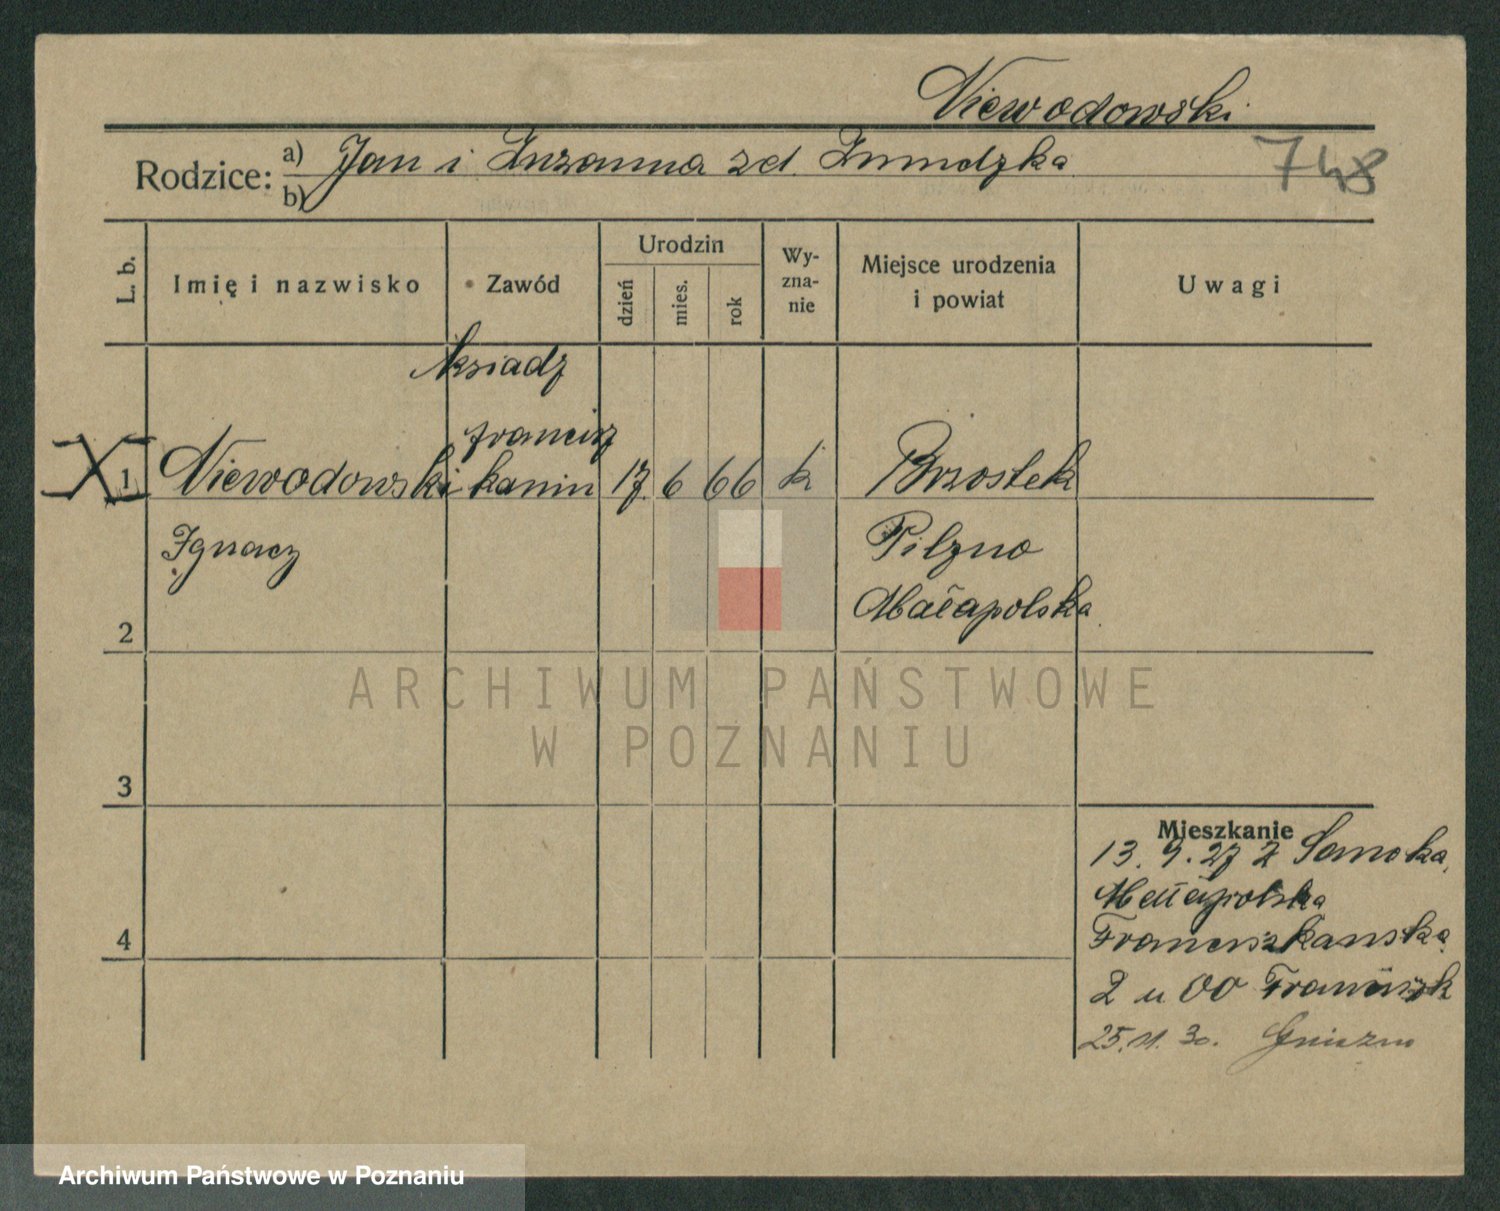 Niewodowski
Rodzice: a) Jan i Zuzanna zd. Zmudzka
b)
748
L. b.
Imię i nazwisko
Zawód
Urodzin
dzień
mies.
rok
Wy-
zna-
nie
Miejsce urodzenia
i powiat
Uwagi
ksiadz
francisz
1 Niewodowski kanin 17. 6 66 k Brostek
Ignacz Pilzno
Małapolska
2
ARCHIWUM PAŃSTWOWE
W POZNANIU
3
Mieszkanie
13. 9. 27 z Sanoka,
Małapolska
Franciszkanska
4
2 u OO Franciszk
25. 11. 30. Gniezno
Archiwum Państwowe w Poznaniu